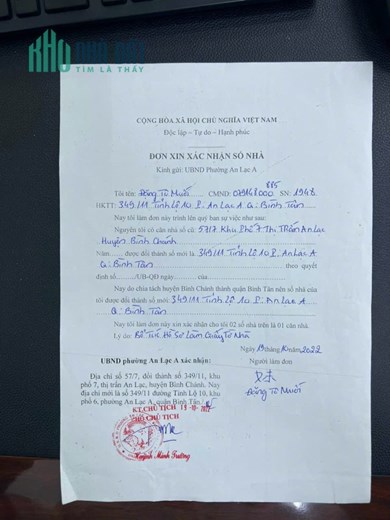 KHO NHÀ ĐẤT
TÌM LÀ THẤY
CỘNG HÒA XÃ HỘI CHỦ NGHĨA VIỆT NAM
Độc lập – Tự do – Hạnh phúc
ĐƠN XIN XÁC NHẬN SỐ NHÀ
Kính gửi: UBND Phường An Lạc A
885
Tôi tên: Đặng Tú Muối CMND: 079148000 SN: 1948
HKTT: 349/11 Tỉnh Lộ 10 P. An Lạc A Q. Bình Tân
Nay tôi làm đơn này trình lên quý ban sự việc như sau:
Nguyên tôi có căn nhà số cũ: 57/7 Khu Phố 7 Thị Trấn An Lạc
Huyện Bình Chánh
Năm........ được đổi thành số mới là: 349/11 Tỉnh Lộ 10 P. An Lạc A
Q. Bình Tân theo quyết
định số...../UB-QĐ ngày......của......
Nay do chia tách huyện Bình Chánh thành quận Bình Tân nên số nhà của
tôi được đổi thành số mới: 349/11 Tỉnh Lộ 10 P. An Lạc A
Q. Bình Tân
Nay tôi làm đơn này xin xác nhận cho tôi 02 số nhà trên là 01 căn nhà.
Lý do: Bổ Túc Hồ Sơ Làm Giấy Tờ Nhà
Ngày 19 tháng 10 năm 2022
UBND phường An Lạc A xác nhận:
Người làm đơn
Địa chỉ số 57/7, đổi thành số 349/11, khu
phố 7, thị trấn An Lạc, huyện Bình Chánh. Nay
địa chỉ mới là số 349/11 đường Tỉnh Lộ 10, khu
phố 6, phường An Lạc A, quận Bình Tân./.
Đặng Tú Muối
KT. CHỦ TỊCH 19-10-2022
PHÓ CHỦ TỊCH
Huỳnh Minh Trường